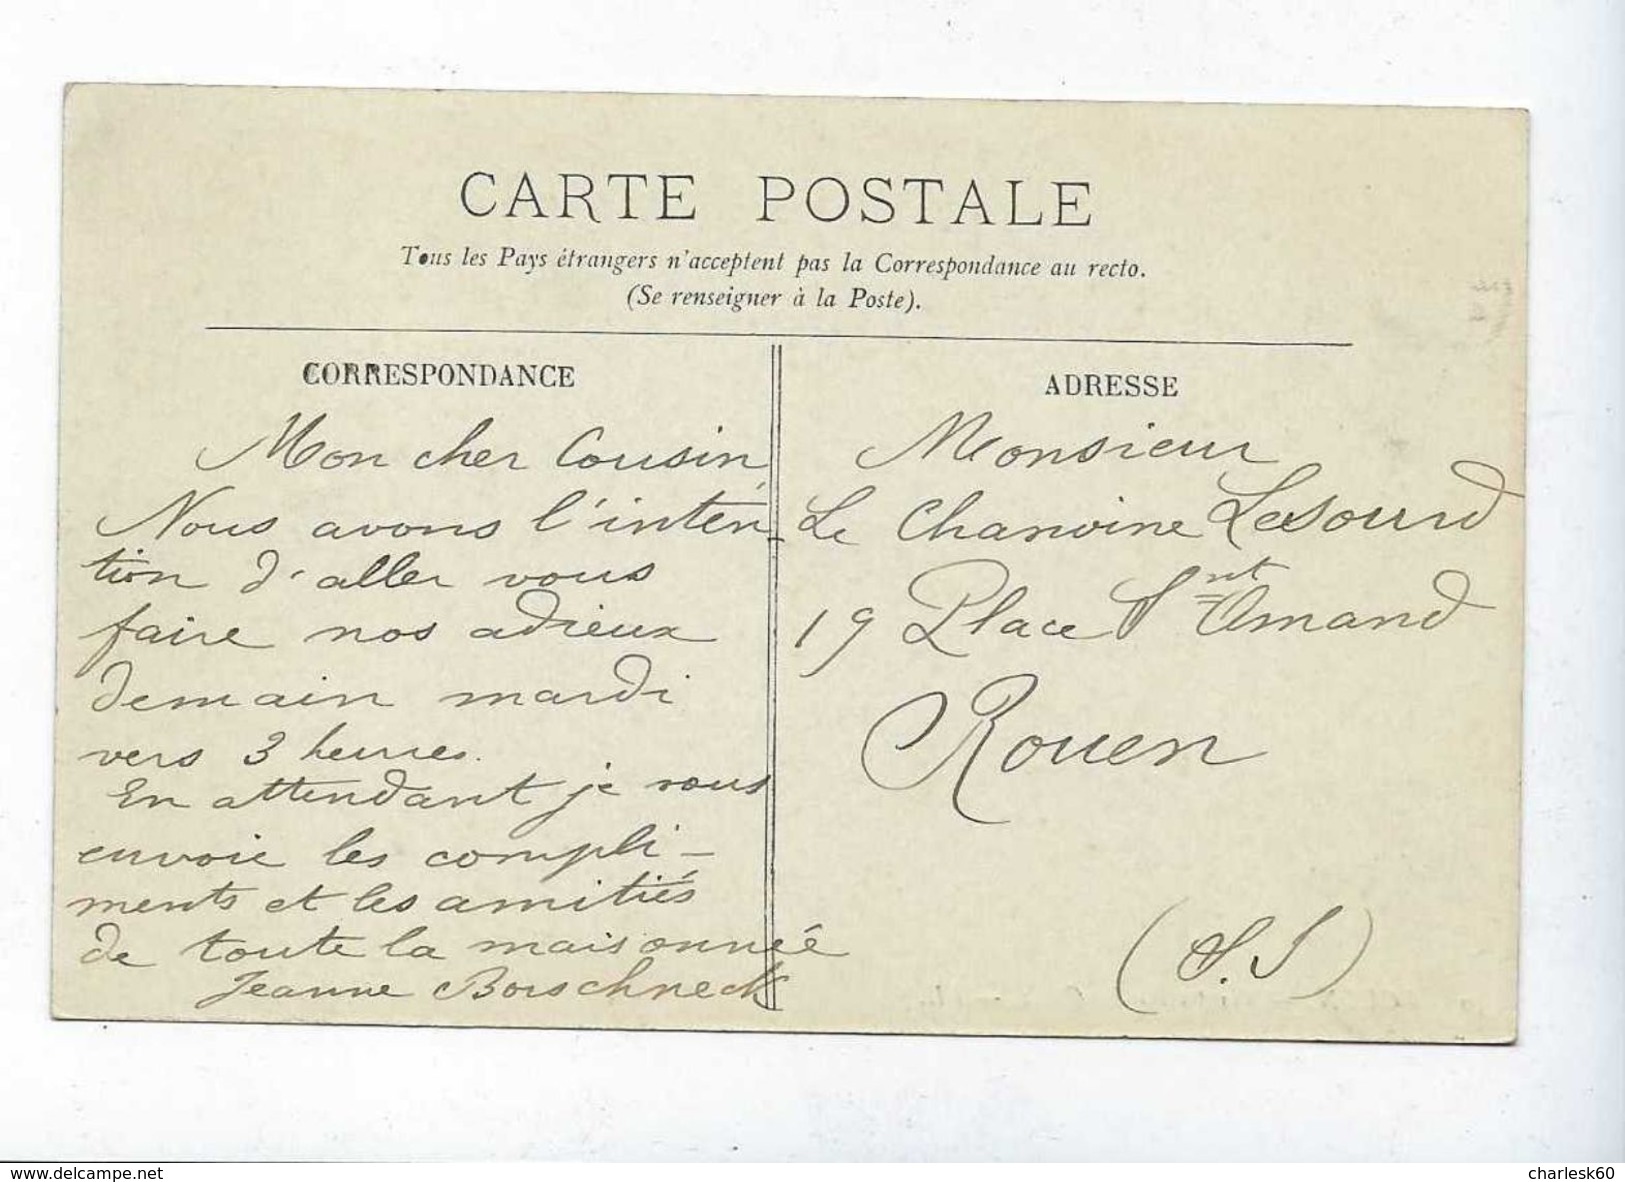 CARTE POSTALE
Tous les Pays étrangers n'acceptent pas la Correspondance au recto.
(Se renseigner à la Poste).
CORRESPONDANCE
Mon cher Cousin,
Nous avons l'inten-
tion d'aller vous
faire nos adieux
demain mardi
vers 3 heures.
En attendant je vous
envoie les compli-
ments et les amitiés
de toute la maisonnée
Jeanne Borschneck
ADRESSE
Monsieur
Le Chanoine Lesourd
19 Place Snt Amand
Rouen
(S.I)
www.delcampe.net
charlesk60